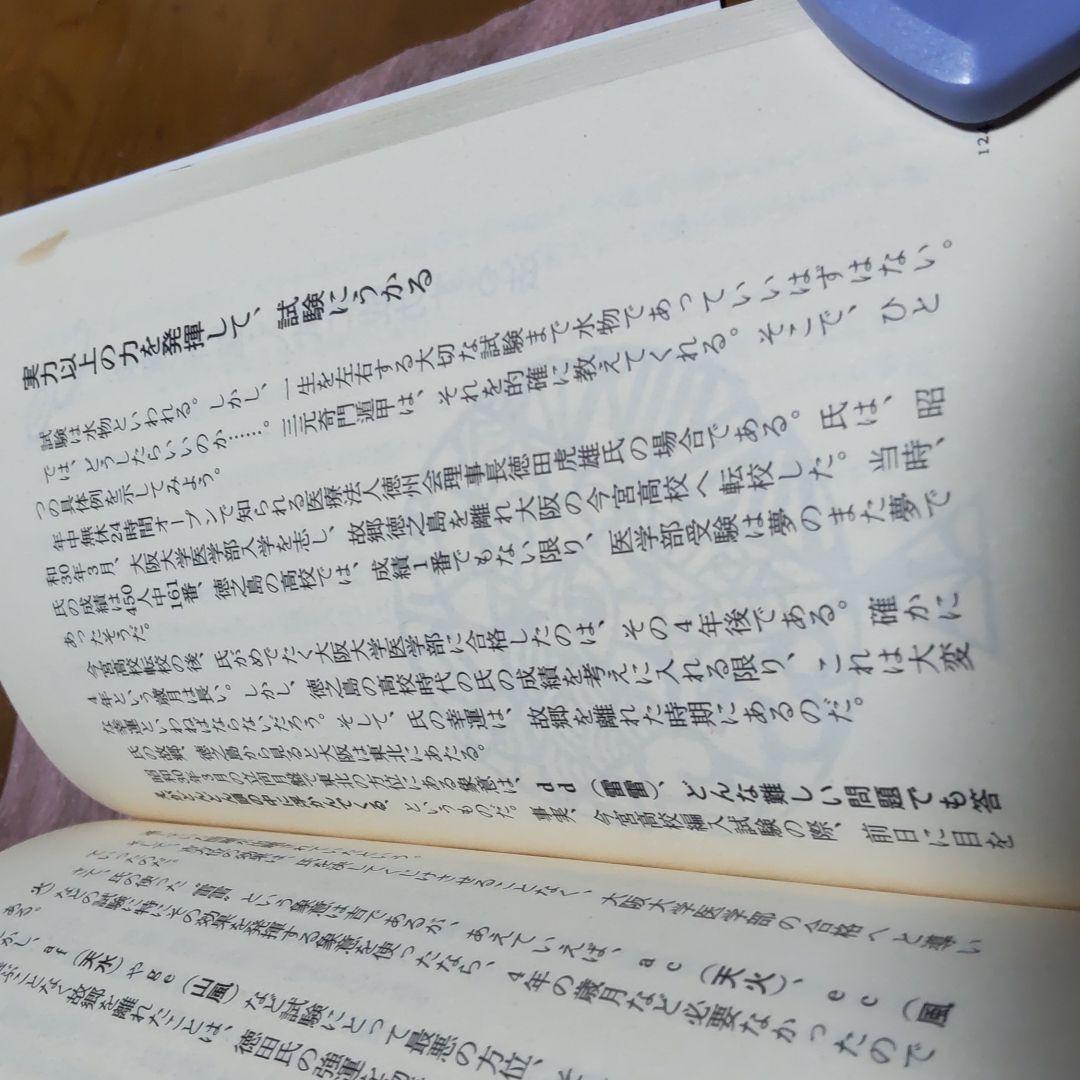 124
実力以上の力を発揮して、試験にうかる
試験は水物といわれる。しかし、一生を左右する大切な試験まで水物であっていいはずはない。
では、どうしたらいいのか……。三元奇門遁甲は、それを的確に教えてくれる。そこで、ひと
つの具体例を示してみよう。
年中無休24時間オープンで知られる医療法人徳州会理事長徳田虎雄氏の場合である。氏は、昭
和30年3月、大阪大学医学部入学を志し、故郷徳之島を離れ大阪の今宮高校へ転校した。当時、
氏の成績は450人中161番、徳之島の高校では、成績1番でもない限り、医学部受験は夢のまた夢で
あったそうだ。
今宮高校転校の後、氏がめでたく大阪大学医学部に合格したのは、その4年後である。確かに
4年という歳月は長い。しかし、徳之島の高校時代の氏の成績を考えに入れる限り、これは大変
な幸運といわねばならないだろう。そして、氏の幸運は、故郷を離れた時期にあるのだ。
氏の故郷、徳之島から見ると大阪は東北にあたる。
昭和30年3月の立向盤で東北の方位にある象意は、dd（雷雷）、どんな難しい問題でも答
えがどんどん頭の中に浮かんでくる、というものだ。事実、今宮高校編入試験の際、前日に目を
そして、方位の効果は、氏を決してくじけさせることなく、大阪大学医学部の合格へと導い
ていったのだ。
さて、氏の使った“雷雷”という象意は吉であるが、あえていえば、ac（天火）、ec（風
火）などの試験に特にその効果を発揮する象意を使ったなら、4年の歳月など必要なかったので
ある。
しかし、af（天水）やge（山風）など試験にとって最悪の方位、
ことなく故郷を離れたことは、徳田氏の強運を